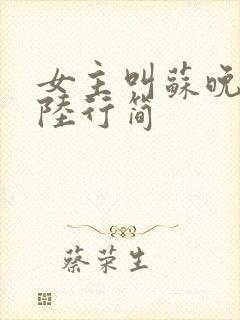 女主叫蘇晚
陸行简
蔡荣生